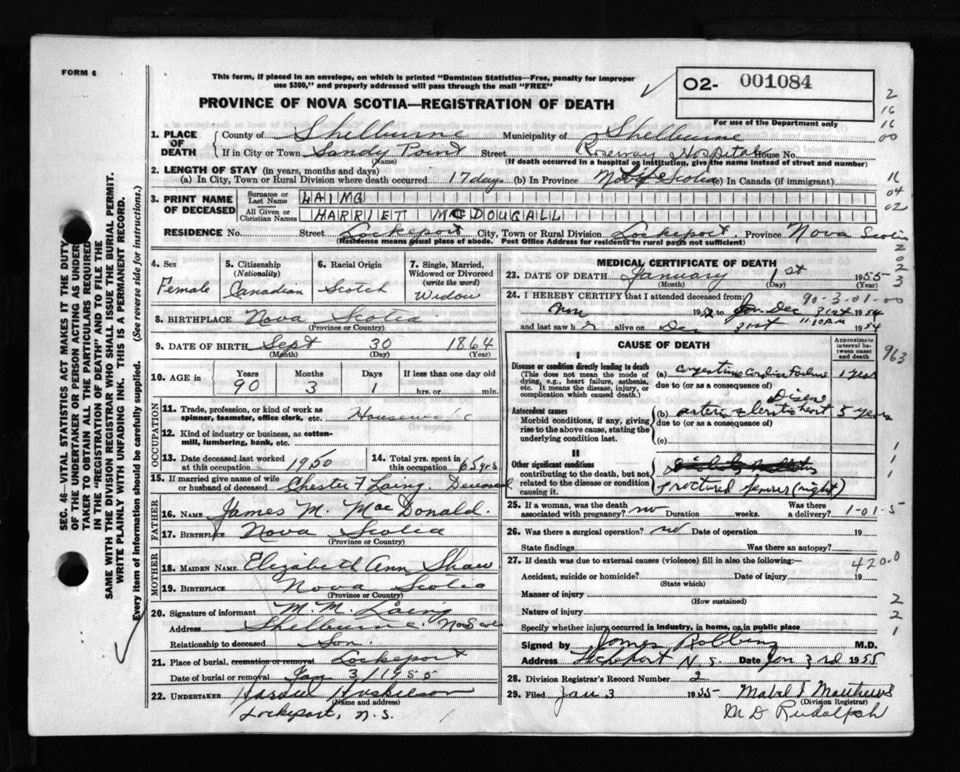 FORM 6
This form, if placed in an envelope, on which is printed "Dominion Statistics—Free, penalty for improper
use $300," and properly addressed will pass through the mail "FREE"
O2- 001084
PROVINCE OF NOVA SCOTIA—REGISTRATION OF DEATH
For use of the Department only
2
16
16
00
1. PLACE OF DEATH
County of Shelburne Municipality of Shelburne
If in City or Town Sandy Point Street Roseway Hospital House No.
(Name) (If death occurred in a hospital or institution, give the name instead of street and number)
2. LENGTH OF STAY (in years, months and days)
(a) In City, Town or Rural Division where death occurred 17 days (b) In Province Nova Scotia (c) In Canada (if immigrant)
3. PRINT NAME OF DECEASED
Surname or Last Name LAING
All Given or Christian Names HARRIET McDOUGALL
RESIDENCE No. Street Lockeport City, Town or Rural Division Lockeport. Province Nova Scotia
(Residence means usual place of abode. Post Office Address for residents in rural parts not sufficient)
4. Sex
Female
5. Citizenship (Nationality)
Canadian
6. Racial Origin
Scotch
7. Single, Married, Widowed or Divorced (write the word)
Widow
8. BIRTHPLACE Nova Scotia
(Province or Country)
9. DATE OF BIRTH Sept 30 1864
(Month) (Day) (Year)
10. AGE Years Months Days If less than one day old
90 3 1 hrs. or min.
OCCUPATION
11. Trade, profession, or kind of work as spinner, teamster, office clerk, etc. Housewife
12. Kind of industry or business, as cotton-mill, lumbering, bank, etc.
13. Date deceased last worked at this occupation 1950
14. Total yrs. spent in this occupation 65 yrs.
15. If married give name of wife or husband of deceased Chester F Laing Deceased
FATHER
16. NAME James M. MacDonald.
17. BIRTHPLACE Nova Scotia
(Province or Country)
MOTHER
18. MAIDEN NAME Elizabeth Ann Shaw
19. BIRTHPLACE Nova Scotia
(Province or Country)
20. Signature of informant M. M. Laing
Address Shelburne.
Relationship to deceased Son.
21. Place of burial, cremation or removal Lockeport
Date of burial or removal Jan 3/1955
22. UNDERTAKER
(Name and address)
Lockeport, N.S.
MEDICAL CERTIFICATE OF DEATH
23. DATE OF DEATH January 1st 1955
(Month) (Day)
24. I HEREBY CERTIFY that I attended deceased from 90-3-01-00
Dec 31st 1954
and last saw h alive on Dec 31st 11:30 AM 1954
CAUSE OF DEATH
Approximate interval between onset and death
963
I
Disease or condition directly leading to death
(This does not mean the mode of dying, e.g., heart failure, asthenia, etc. It means the disease, injury, or complication which caused death.)
(a) Congestive Cardiac Failure 1 year
due to (or as a consequence of)
Antecedent causes
Morbid conditions, if any, giving rise to the above cause, stating the underlying condition last.
(b) arteriosclerotic heart Disease 5 years
due to (or as a consequence of)
(c)
II
Other significant conditions
contributing to the death, but not related to the disease or condition causing it.
fractured femur (right)
25. If a woman, was the death associated with pregnancy? no Duration weeks. Was there a delivery? 1-01-5
26. Was there a surgical operation? no Date of operation 19
State findings Was there an autopsy?
27. If death was due to external causes (violence) fill in also the following:— 420.0
Accident, suicide or homicide? Date of injury 19
(State which)
Manner of injury
(How sustained)
Nature of injury
Specify whether injury occurred in industry, in home, or in public place
Signed by James Robbins M.D.
Address Lockeport N.S. Date Jan 3rd 1955
28. Division Registrar's Record Number 2
29. Filed Jan 3 1955 Mabel J. Matthews
(Division Registrar)
M D Rudolph
SEC. 46—VITAL STATISTICS ACT MAKES IT THE DUTY
OF THE UNDERTAKER OR PERSON ACTING AS UNDER-
TAKER TO OBTAIN ALL THE PARTICULARS REQUIRED
IN THE "REGISTRATION OF DEATH" AND TO FILE THE
SAME WITH THE DIVISION REGISTRAR WHO SHALL ISSUE THE BURIAL PERMIT.
WRITE PLAINLY WITH UNFADING INK. THIS IS A PERMANENT RECORD.
Every item of information should be carefully supplied. (See reverse side for instructions.)